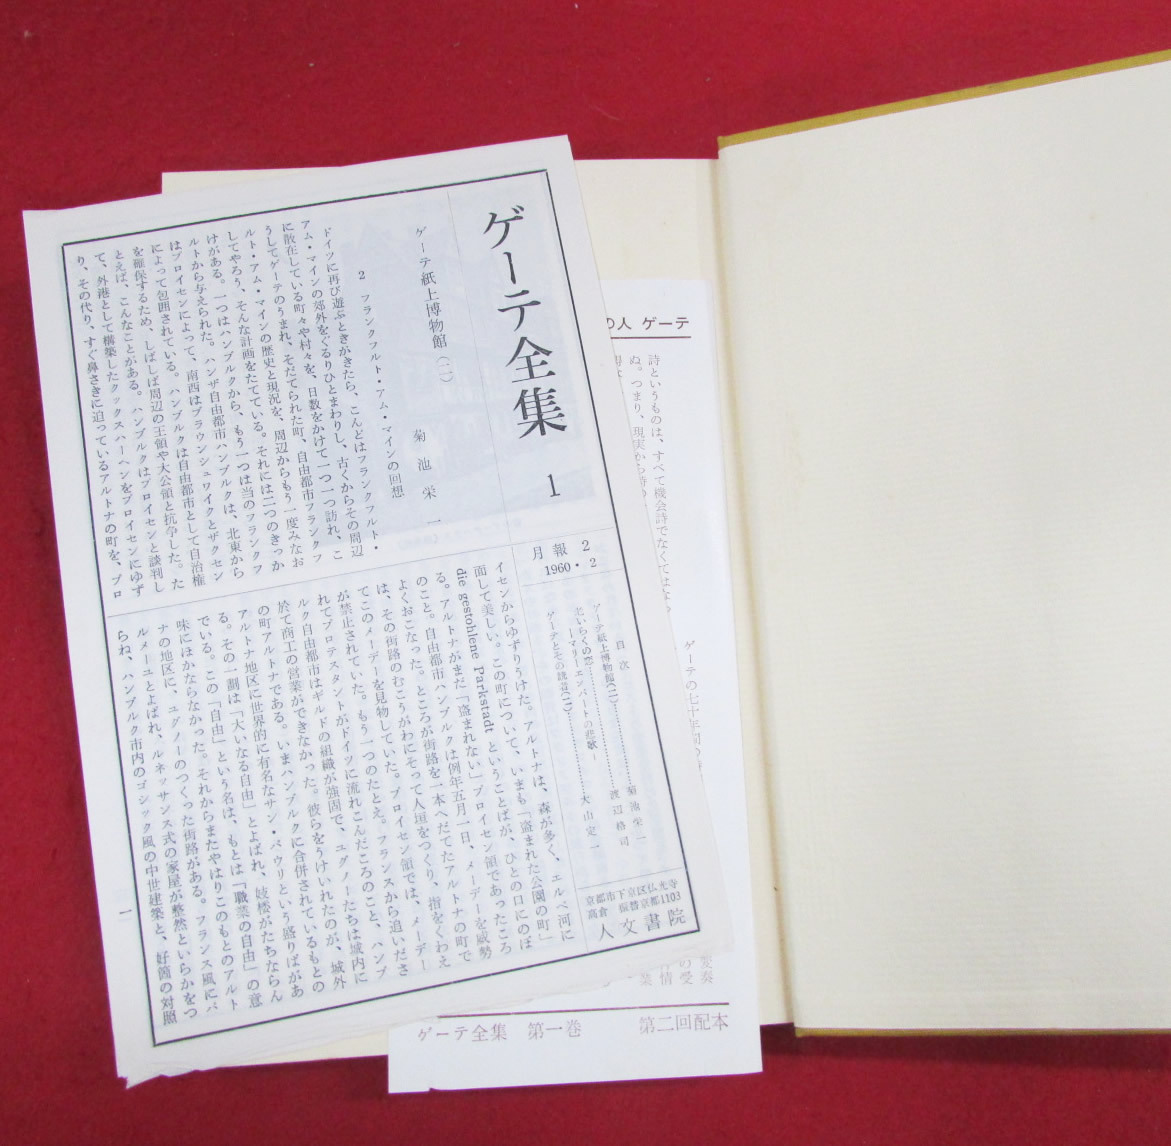 ゲーテ全集 1
ゲーテ紙上博物館(二)
菊池栄一
2 フランクフルト・アム・マインの回想
ドイツに再び遊ぶときがきたら、こんどはフランクフルト・
アム・マインの郊外をぐるりひとまわりし、古くからその周辺
に散在している町々や村々を、日数をかけて一つ一つ訪れ、こ
うしてゲーテのうまれ、そだてられた町、自由都市フランクフ
ルト・アム・マインの歴史と現況を、周辺からもう一度みなお
してやろう、そんな計画をたてている。それには二つのきっか
けがある。一つはハンブルクから、もう一つは当のフランクフ
ルトから与えられた。ハンザ自由都市ハンブルクは、北東から
はプロイセンによって、南西はブラウンシュワイクとザクセン
によって包囲されている。ハンブルクは自由都市として自治権
を確保するため、しばしば周辺の王領や大公領と抗争した。た
とえば、こんなことがある。ハンブルクはプロイセンと談判し
て、外港として構築したクックスハーヘンをプロイセンにゆず
り、その代り、すぐ鼻さきに迫っているアルトナの町を、プロ
月報 2
1960・2
目次
ゲーテ紙上博物館(二)…菊池栄一
老いらくの恋…渡辺格司
―マリーエンバートの悲歌―
ゲーテとその鉄道(二)…大山定一
京都市下京区仏光寺
高倉 振替京都1103
人文書院
イセンからゆずりうけた。アルトナは、森が多く、エルベ河に
面して美しい。この町について、いまも「盗まれた公園の町」
die gestohlene Parkstadt ということばが、ひとの口にのぼ
る。アルトナがまだ「盗まれない」プロイセン領であったころ
のこと。自由都市ハンブルクは例年五月一日、メーデーを威勢
よくおこなった。ところが街路を一本へだてたアルトナの町で
は、その街路のむこうがわにそって人垣をつくり、指をくわえ
てこのメーデーを見物していた。プロイセン領では、メーデー
が禁止されていた。もう一つのたとえ。フランスから追いださ
れてプロテスタントがドイツに流れこんだころのこと、ハンブ
ルク自由都市はギルドの組織が強固で、ユグノーたちは城内に
於て商工の営業ができなかった。彼らをうけいれたのが、城外
の町アルトナである。いまハンブルクに合併されているもとの
アルトナ地区に世界的に有名なサン・パウリという盛りばがあ
る。その一劃は「大いなる自由」とよばれ、妓楼がたちならん
でいる。この「自由」という名は、もとは「職業の自由」の意
味にほかならなかった。それからまたやはりこのもとのアルト
ナの地区に、ユグノーのつくった街路がある。フランス風にパ
ルメーユとよばれ、ルネッサンス式の家屋が整然といらかをつ
らね、ハンブルク市内のゴシック風の中世建築と、好箇の対照
一
の人 ゲーテ
詩というものは、すべて機会詩でなくてはな
ぬ。つまり、現実から詩の
ゲーテの七十年
変奏
の受
情
業
ゲーテ全集 第一巻 第二回配本